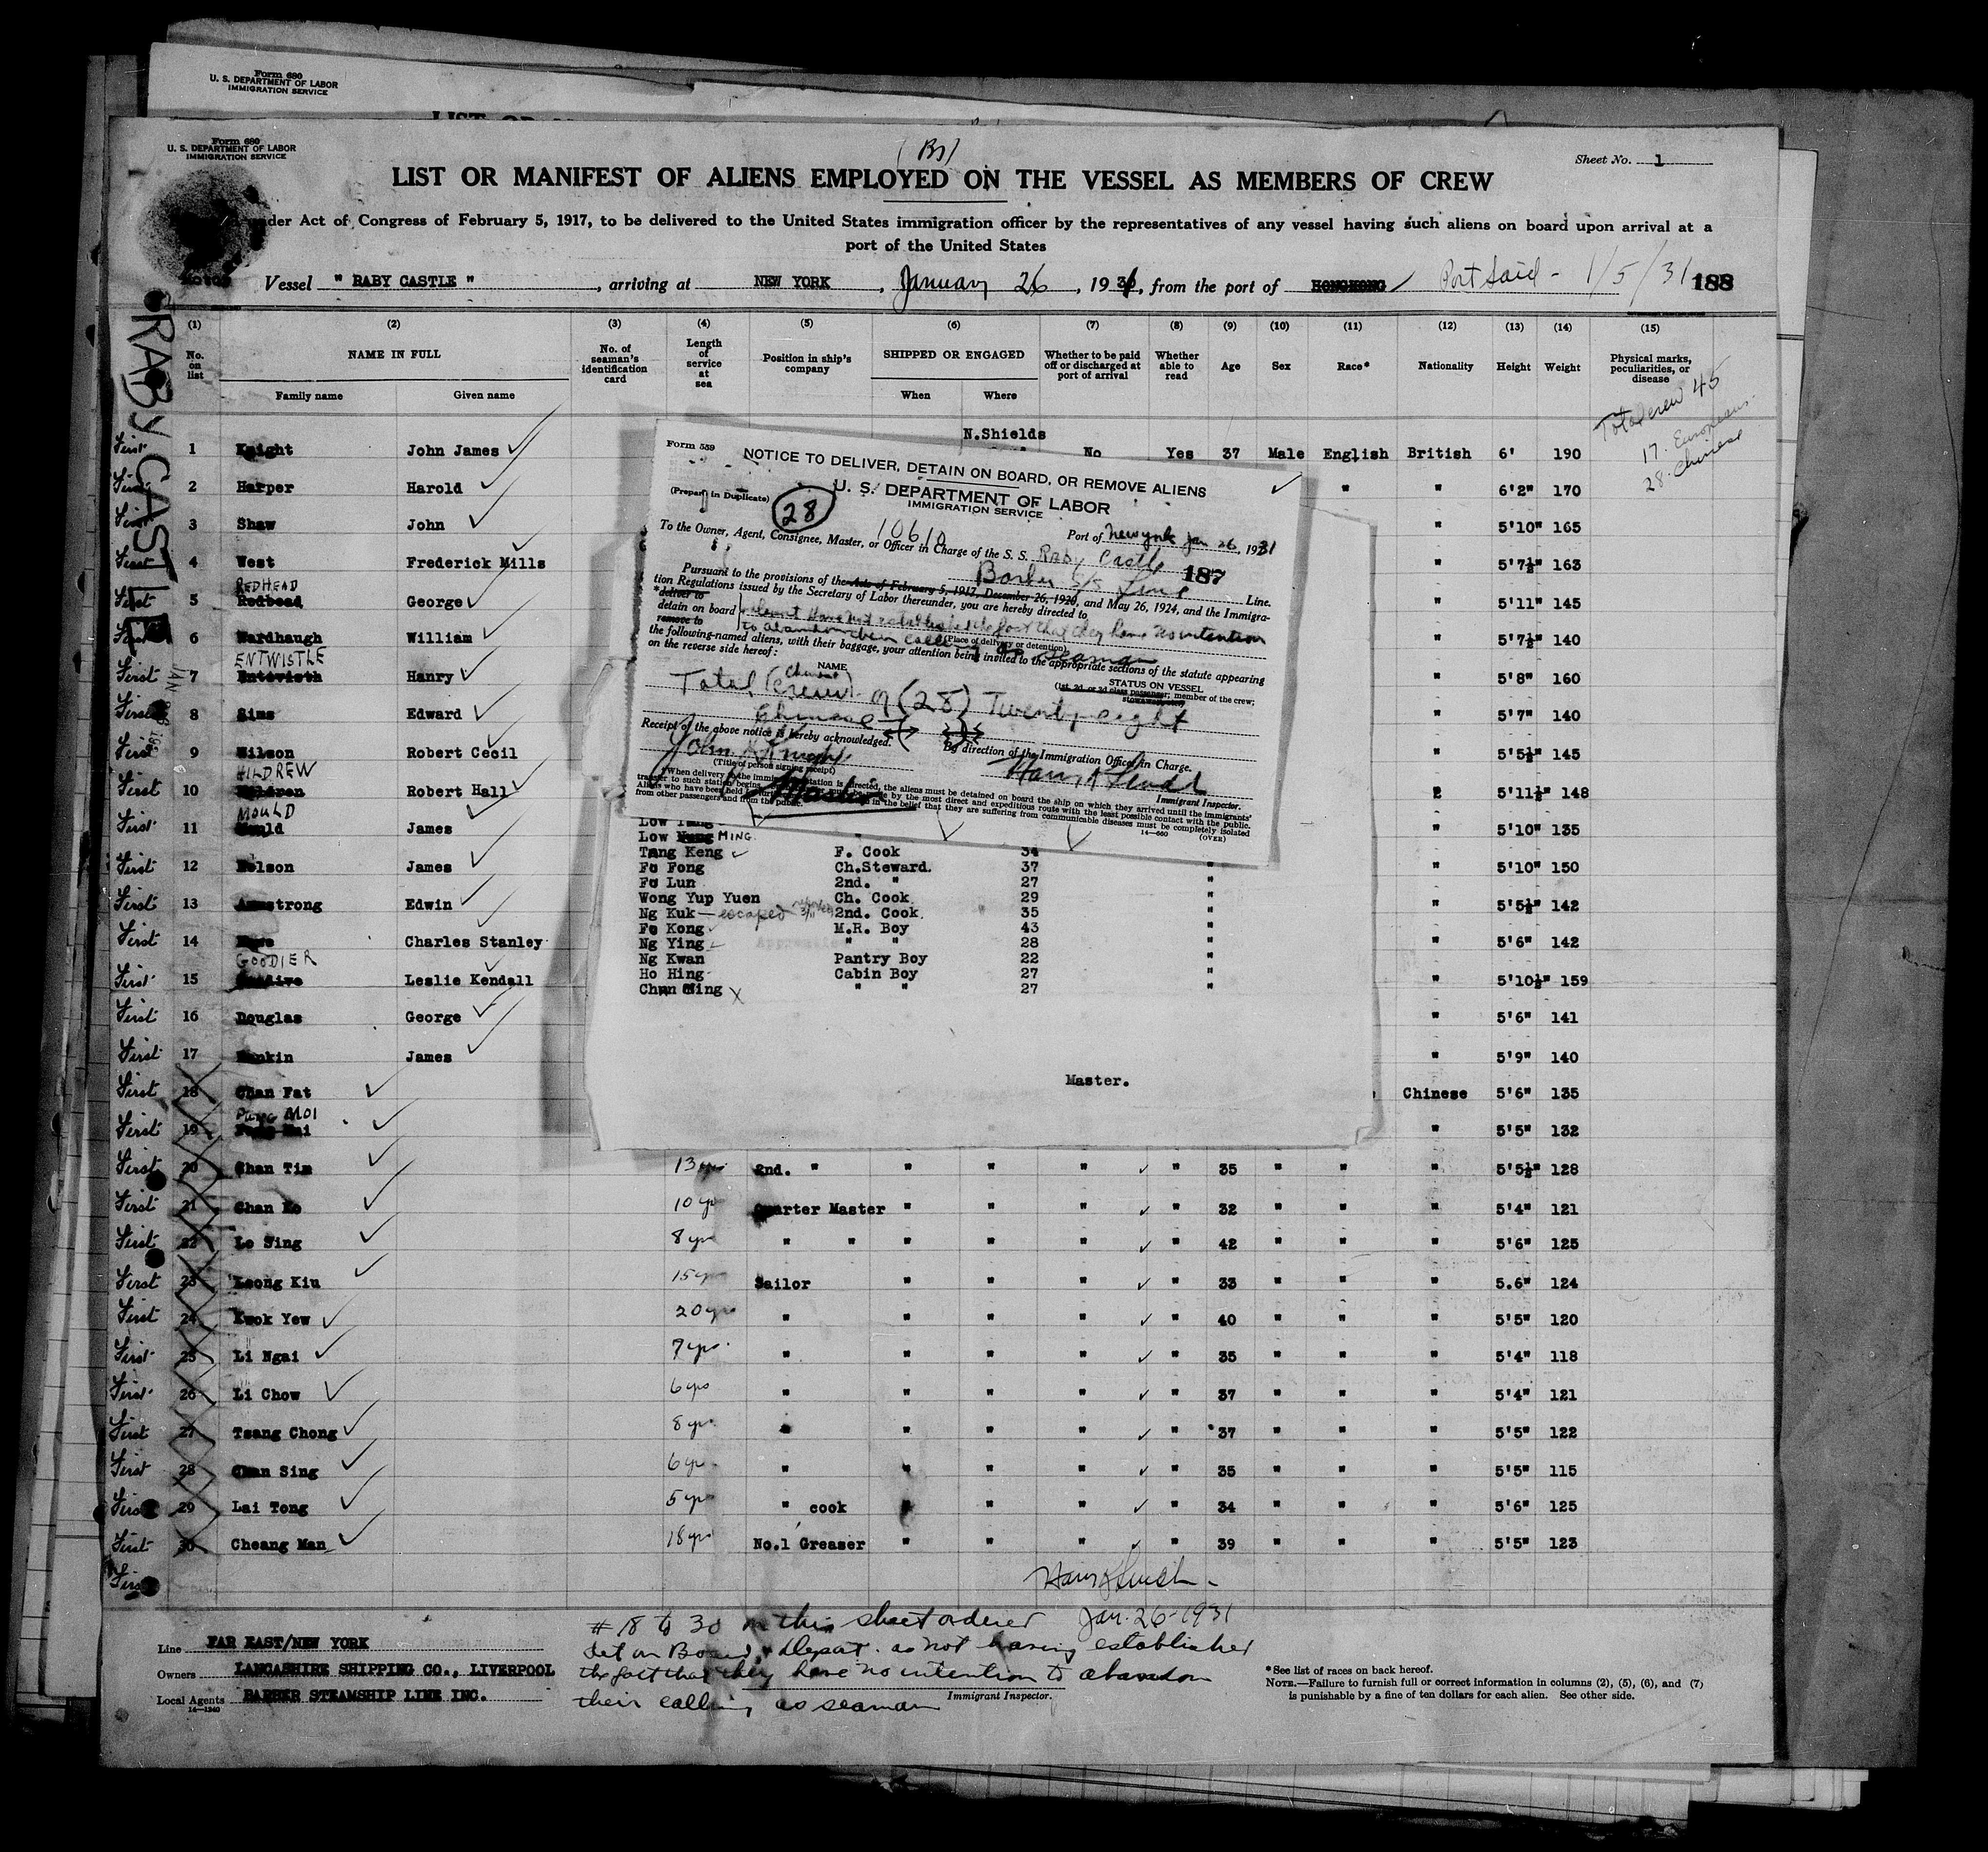 Form 680
U. S. DEPARTMENT OF LABOR
IMMIGRATION SERVICE
Form 680
U. S. DEPARTMENT OF LABOR
IMMIGRATION SERVICE
Sheet No. 1
LIST OR MANIFEST OF ALIENS EMPLOYED ON THE VESSEL AS MEMBERS OF CREW
under Act of Congress of February 5, 1917, to be delivered to the United States immigration officer by the representatives of any vessel having such aliens on board upon arrival at a
port of the United States
Vessel " RABY CASTLE ", arriving at NEW YORK, January 26, 1931, from the port of HONGKONG Port Said - 1/5/31 188
RABY CASTLE
(1) (2) (3) (4) (5) (6) (7) (8) (9) (10) (11) (12) (13) (14) (15)
No. on list
NAME IN FULL
Family name Given name
No. of seaman's identification card
Length of service at sea
Position in ship's company
SHIPPED OR ENGAGED
When Where
Whether to be paid off or discharged at port of arrival
Whether able to read
Age
Sex
Race*
Nationality
Height
Weight
Physical marks, peculiarities, or disease
Total crew 45
17. Europeans.
28. Chinese
N.Shields
First 1 Knight John James No Yes 37 Male English British 6' 190
First 2 Harper Harold " " 6'2" 170
First 3 Shaw John " 5'10" 165
First 4 West Frederick Mills " 5'7½" 163
REDHEAD
First 5 Redbead George " 5'11" 145
First 6 Wardhaugh William " 5'7½" 140
ENTWISTLE
First 7 Entevisth Hanry " 5'8" 160
First 8 Sims Edward " 5'7" 140
First 9 Wilson Robert Cecil " 5'5½" 145
HILDREW
First 10 Robert Hall 5'11½" 148
MOULD
First 11 James " 5'10" 135
First 12 Nelson James " 5'10" 150
First 13 Armstrong Edwin " 5'5½" 142
First 14 Charles Stanley " 5'6" 142
GOODIER
First 15 Leslie Kendall " 5'10½" 159
First 16 Douglas George " 5'6" 141
First 17 Rankin James " 5'9" 140
First 18 Chan Fat Chinese 5'6" 135
Pang MOI
First 19 " 5'5" 132
First 20 Chan Tim 13 yrs 2nd. " " " " " 35 " " " 5'5½" 128
First 21 Chan Ko 10 yrs Quarter Master " " " " 32 " " " 5'4" 121
First 22 Lo Sing 8 yrs " " " " " " 42 " " " 5'6" 125
First 23 Leong Kiu 15 yrs Sailor " " " " 33 " " " 5.6" 124
First 24 Kwok Yew 20 yrs " " " " " 40 " " " 5'5" 120
First 25 Li Ngai 7 yrs. " " " " " 35 " " " 5'4" 118
First 26 Li Chow 6 yrs " " " " " 37 " " " 5'4" 121
First 27 Tsang Chong 8 yrs " " " " " 37 " " " 5'5" 122
First 28 Chan Sing 6 yrs " " " " " 35 " " " 5'5" 115
First 29 Lai Tong 5 yrs " cook " " " " 34 " " " 5'6" 125
First 30 Cheang Man 18 yrs No.1 Greaser " " " " 39 " " " 5'5" 123
First
Form 559
NOTICE TO DELIVER, DETAIN ON BOARD, OR REMOVE ALIENS
U. S. DEPARTMENT OF LABOR
IMMIGRATION SERVICE
(Prepare in Duplicate)
28
10610
Port of New York Jan 26, 1931
To the Owner, Agent, Consignee, Master, or Officer in Charge of the S. S. Raby Castle
Barber S/S Line Line.
187
Pursuant to the provisions of the Acts of February 5, 1917, December 26, 1920, and May 26, 1924, and the Immigra-
tion Regulations issued by the Secretary of Labor thereunder, you are hereby directed to
*deliver to
detain on board
remove to
have not established the fact that they have no intention
to abandon their calling as seaman
(Place of delivery or detention)
the following-named aliens, with their baggage, your attention being invited to the appropriate sections of the statute appearing
on the reverse side hereof:
NAME
STATUS ON VESSEL
(1st, 2d, or 3d class passenger; member of the crew; stowaway, etc.)
Total (Chinese crew) of (28) Twenty-eight
Chinese
Receipt of the above notice is hereby acknowledged.
By direction of the Immigration Officer in Charge.
John J Knight
(Title of person signing receipt)
Master
Immigrant Inspector.
*When delivery to the immigration station is directed, the aliens must be detained on board the ship on which they arrived until the immigrants'
transfer to such station begins. by the most direct and expeditious route with the least possible contact with the public.
Aliens who have been held in the belief that they are suffering from communicable diseases must be completely isolated
from other passengers and from the public.
14—660 (OVER)
Low
Low MING
Tang Keng F. Cook 34
Fo Fong Ch.Steward. 37 "
Fo Lun 2nd. " 27 "
Wong Yup Yuen Ch. Cook 29 "
Ng Kuk — escaped 2nd. Cook. 35 "
Fo Kong M.R. Boy 43 "
Ng Ying " " 28 "
Ng Kwan Pantry Boy 22 "
Ho Hing Cabin Boy 27 "
Chan Ming X " " 27 "
Master.
Jan. 26-1931
# 18 to 30 on this sheet ordered
det on Board & Deport. as not having established
the fact that they have no intention to abandon
their calling as seaman
Immigrant Inspector.
Line FAR EAST/NEW YORK
Owners LANCASHIRE SHIPPING CO., LIVERPOOL
Local Agents BARBER STEAMSHIP LINE INC.
14—1240
*See list of races on back hereof.
NOTE.—Failure to furnish full or correct information in columns (2), (5), (6), and (7)
is punishable by a fine of ten dollars for each alien. See other side.